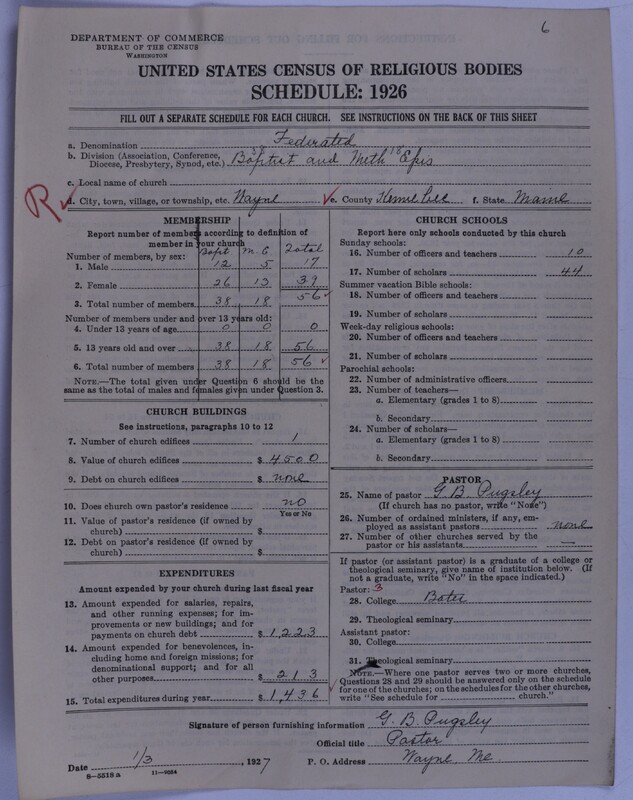 6
DEPARTMENT OF COMMERCE
BUREAU OF THE CENSUS
WASHINGTON
UNITED STATES CENSUS OF RELIGIOUS BODIES
SCHEDULE: 1926
FILL OUT A SEPARATE SCHEDULE FOR EACH CHURCH. SEE INSTRUCTIONS ON THE BACK OF THIS SHEET
a. Denomination Federated
b. Division (Association, Conference, Diocese, Presbytery, Synod, etc.) Baptist and Meth 18 Epis
c. Local name of church
R
d. City, town, village, or township, etc. Wayne e. County f. State Maine
MEMBERSHIP
Report number of members according to definition of
member in your church
Bapt M. E Total
Number of members, by sex:
1. Male 12 5 17
2. Female 26 13 39
3. Total number of members 38 18 56
Number of members under and over 13 years old:
4. Under 13 years of age 0 0 0
5. 13 years old and over 38 18 56
6. Total number of members 38 18 56
NOTE.—The total given under Question 6 should be the
same as the total of males and females given under Question 3.
CHURCH BUILDINGS
See instructions, paragraphs 10 to 12
7. Number of church edifices 1
8. Value of church edifices $ 4500
9. Debt on church edifices $ none
10. Does church own pastor's residence? no
Yes or No
11. Value of pastor's residence (if owned by
church) $
12. Debt on pastor's residence (if owned by
church) $
EXPENDITURES
Amount expended by your church during last fiscal year
13. Amount expended for salaries, repairs,
and other running expenses; for im-
provements or new buildings; and for
payments on church debt $ 1223
14. Amount expended for benevolences, in-
cluding home and foreign missions; for
denominational support; and for all
other purposes $ 213
15. Total expenditures during year $ 1436
CHURCH SCHOOLS
Report here only schools conducted by this church
Sunday schools:
16. Number of officers and teachers 10
17. Number of scholars 44
Summer vacation Bible schools:
18. Number of officers and teachers
19. Number of scholars
Week-day religious schools:
20. Number of officers and teachers
21. Number of scholars
Parochial schools:
22. Number of administrative officers
23. Number of teachers—
a. Elementary (grades 1 to 8)
b. Secondary
24. Number of scholars—
a. Elementary (grades 1 to 8)
b. Secondary
PASTOR
25. Name of pastor G. B. Pugsley
(If church has no pastor, write "None")
26. Number of ordained ministers, if any, em-
ployed as assistant pastors none
27. Number of other churches served by the
pastor or his assistants
If pastor (or assistant pastor) is a graduate of a college or
theological seminary, give name of institution below. (If
not a graduate, write "No" in the space indicated.)
Pastor: 3
28. College Bates
29. Theological seminary
Assistant pastor:
30. College
31. Theological seminary
NOTE.—Where one pastor serves two or more churches,
Questions 28 and 29 should be answered only on the schedule
for one of the churches; on the schedules for the other churches,
write "See schedule for church."
Signature of person furnishing information G. B. Pugsley
Official title Pastor
Date 1/3, 1927 P. O. Address Wayne Me.
8-5518 a 11-9084